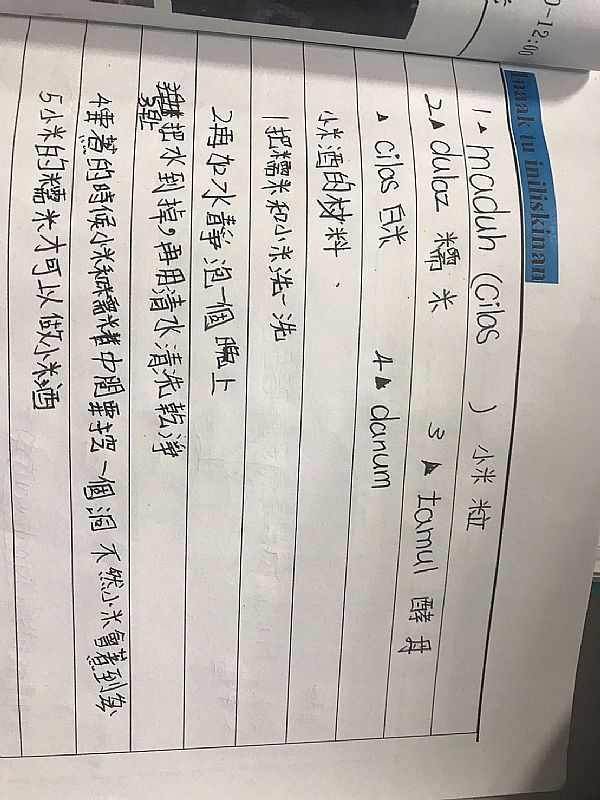 0~12:00
Inaak tu iniliskinan
1▲ maduh (cilas ) 小米粒
2▲ dulaz 糯米 3▲ tamul 酵母
▲ cilas 白米 4▲ danum
小米酒的材料、
1把糯米和小米洗一洗
2再加水靜泡一個晚上
把水到掉,再用清水清洗乾淨
4要蒸的時候小米和糯米中間要挖一個洞 不然小米會蒸到
5小米的糯米才可以做小米酒